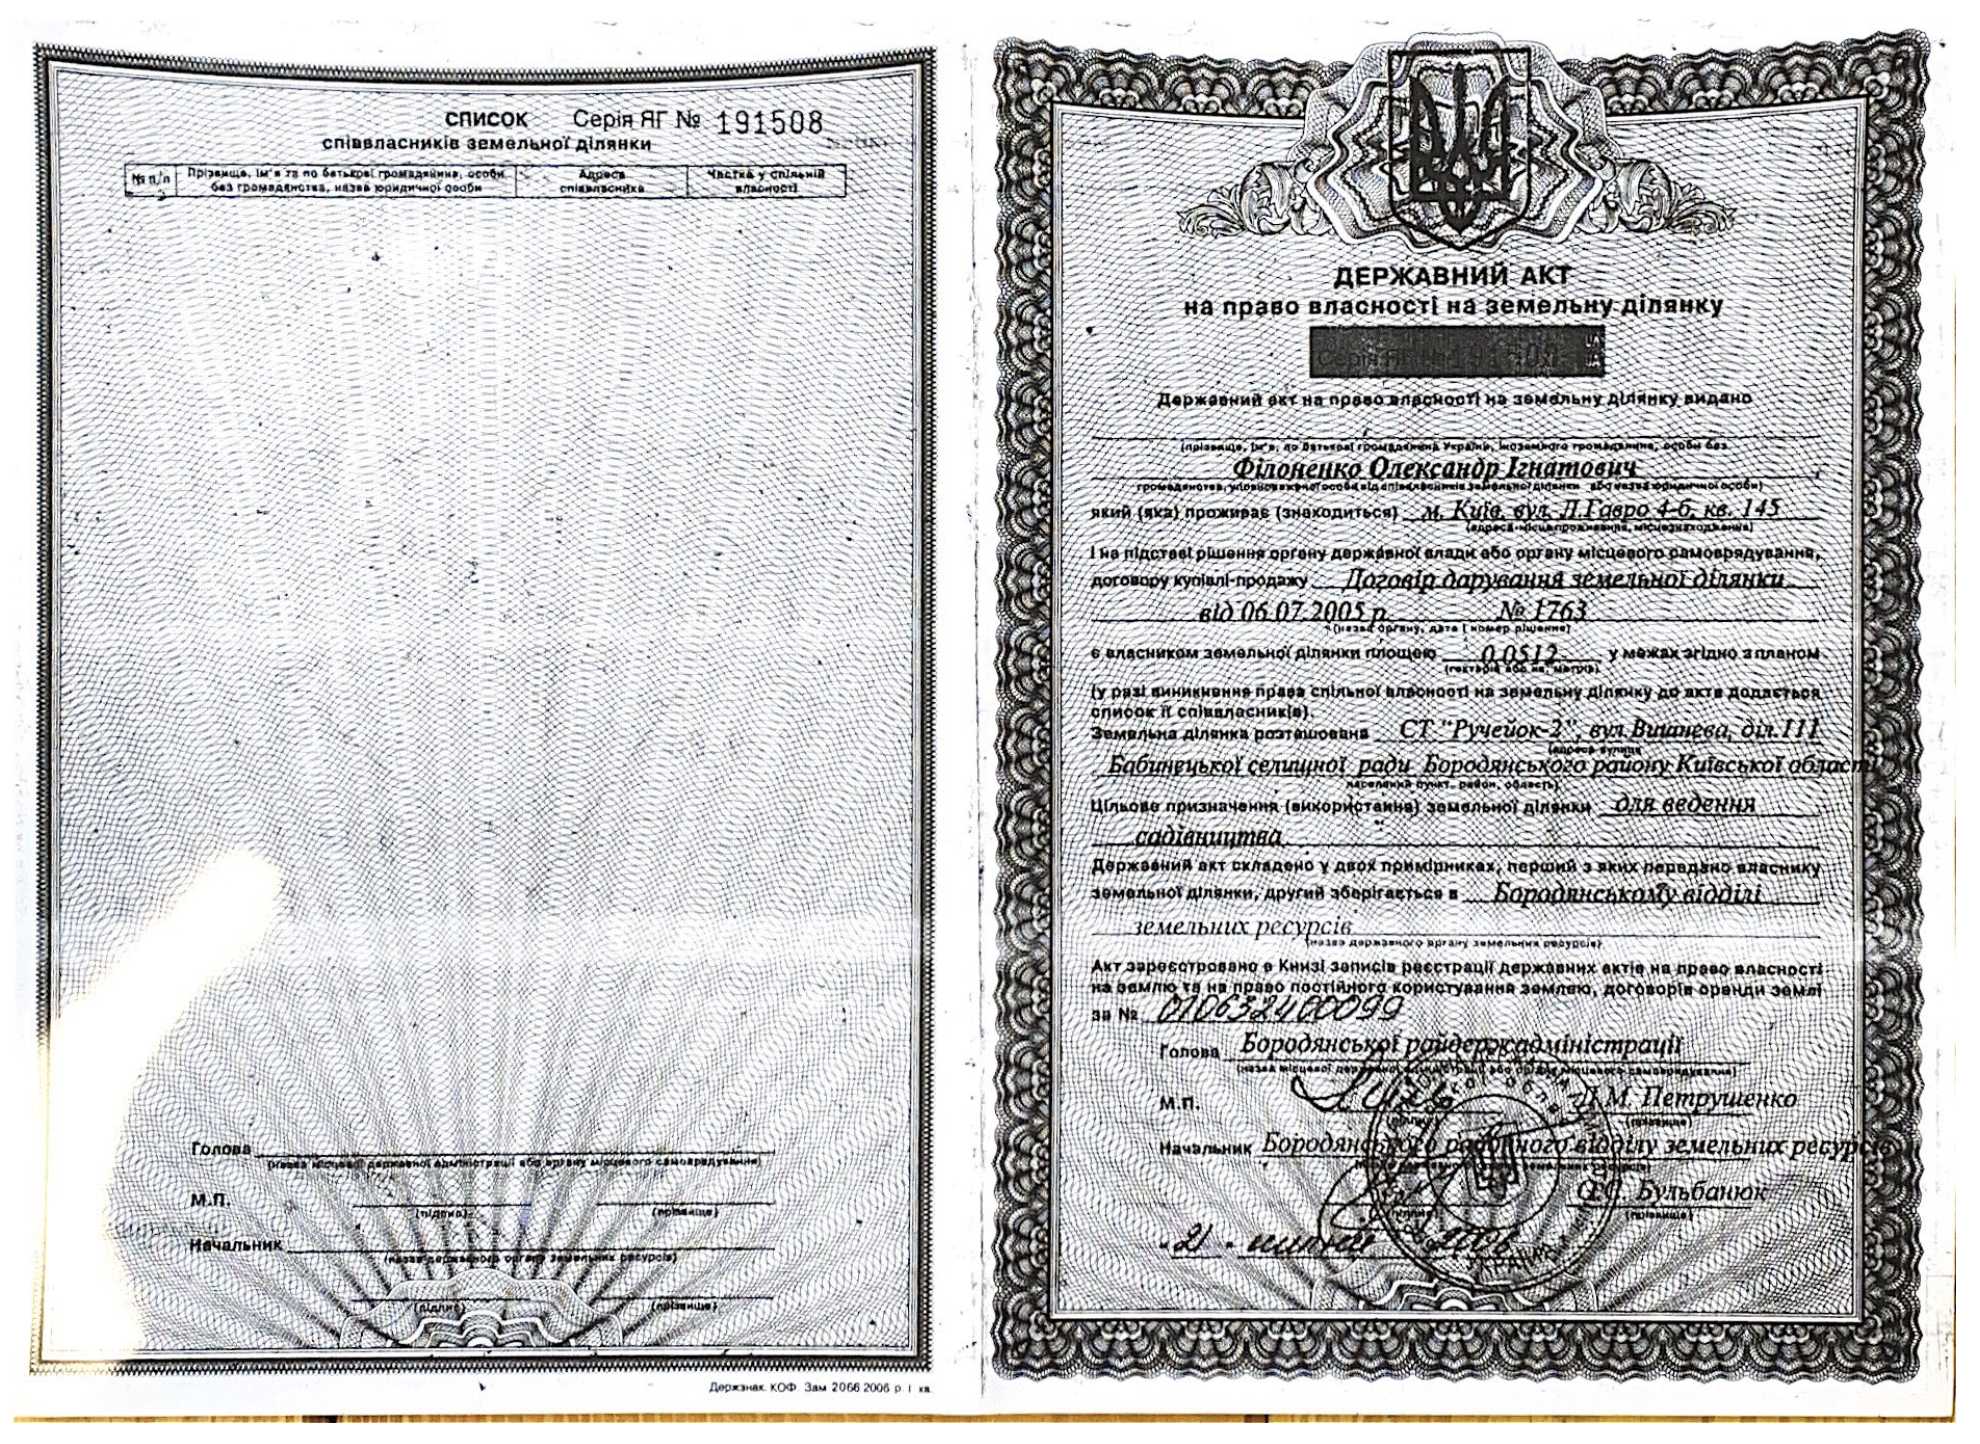 СПИСОК Серія ЯГ № 191508
співвласників земельної ділянки
№ п/п
Прізвище, ім'я та по батькові громадянина, особи
без громадянства, назва юридичної особи
Адреса
співвласника
Частка у спільній
власності
Голова
(назва місцевої державної адміністрації або органу місцевого самоврядування)
М.П.
(підпис) (прізвище)
Начальник
(назва державного органу земельних ресурсів)
(підпис) (прізвище)
Держзнак. КОФ. Зам 2066 2006 р. I кв.
ДЕРЖАВНИЙ АКТ
на право власності на земельну ділянку
Серія ЯГ №
Державний акт на право власності на земельну ділянку видано
(прізвище, ім'я, по батькові громадянина України, іноземного громадянина, особи без
Філоненко Олександр Ігнатович
громадянства, уповноваженої особи від співвласників земельної ділянки або назва юридичної особи)
який (яка) проживає (знаходиться) м. Київ, вул. Л.Гавро 4-б, кв. 145
(адреса місця проживання, місцезнаходження)
і на підставі рішення органу державної влади або органу місцевого самоврядування,
договору купівлі-продажу Договір дарування земельної ділянки
від 06.07.2005 р. № 1763
(назва органу, дата і номер рішення)
є власником земельної ділянки площею 0,0512 у межах згідно з планом
(гектарів або кв. метрів)
(у разі виникнення права спільної власності на земельну ділянку до акта додається
список її співвласників).
Земельна ділянка розташована СТ "Ручейок-2", вул. Вишнева, діл.111
(адреса: вулиця
Бабинецької селищної ради Бородянського району Київської області
населений пункт, район, область)
Цільове призначення (використання) земельної ділянки для ведення
садівництва
Державний акт складено у двох примірниках, перший з яких передано власнику
земельної ділянки, другий зберігається в Бородянському відділі
земельних ресурсів
(назва державного органу земельних ресурсів)
Акт зареєстровано в Книзі записів реєстрації державних актів на право власності
на землю та на право постійного користування землею, договорів оренди землі
за № 010632400099
Голова Бородянської райдержадміністрації
(назва місцевої державної адміністрації або органу місцевого самоврядування)
М.П. Петрушенко
(підпис) (прізвище)
Начальник Бородянського районного відділу земельних ресурсів
Бульбанюк
(підпис) (прізвище)